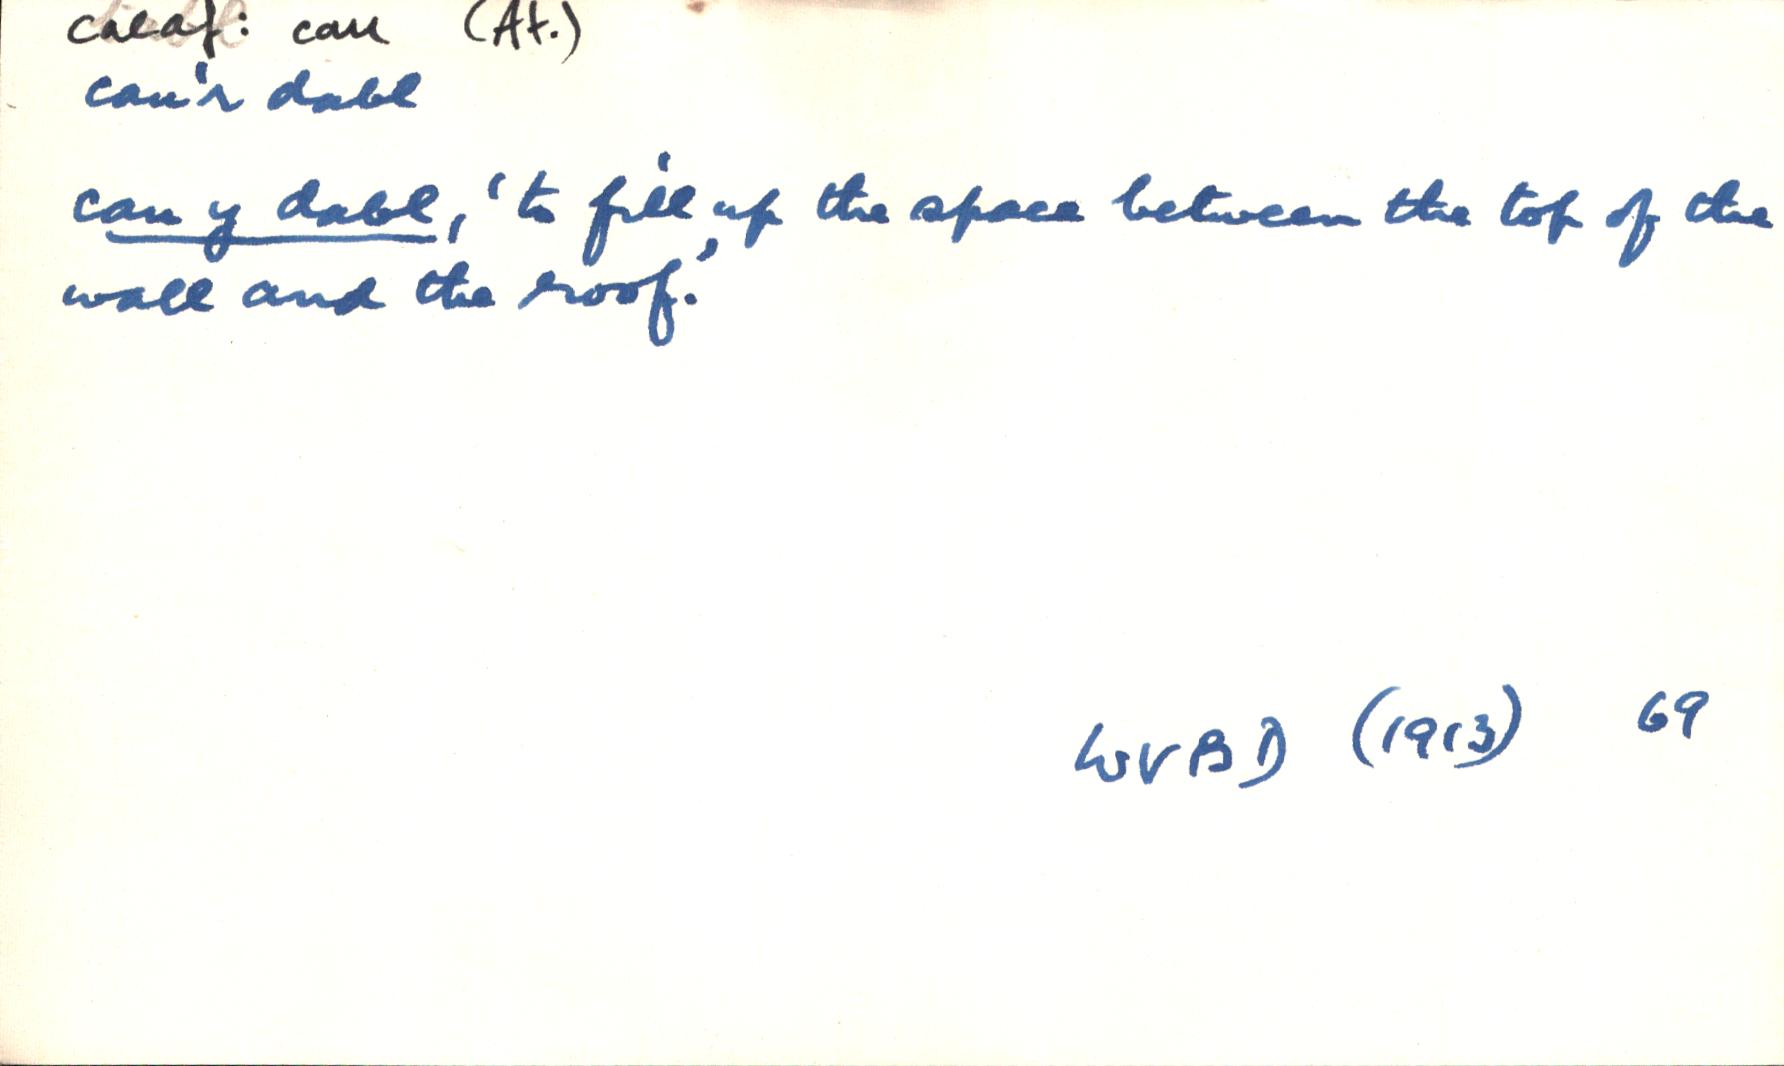 caeaf: cau (At.)
cau'r dabl
cau y dabl, 'to fill up the space between the top of the
wall and the roof.'
WVBD (1913) 69